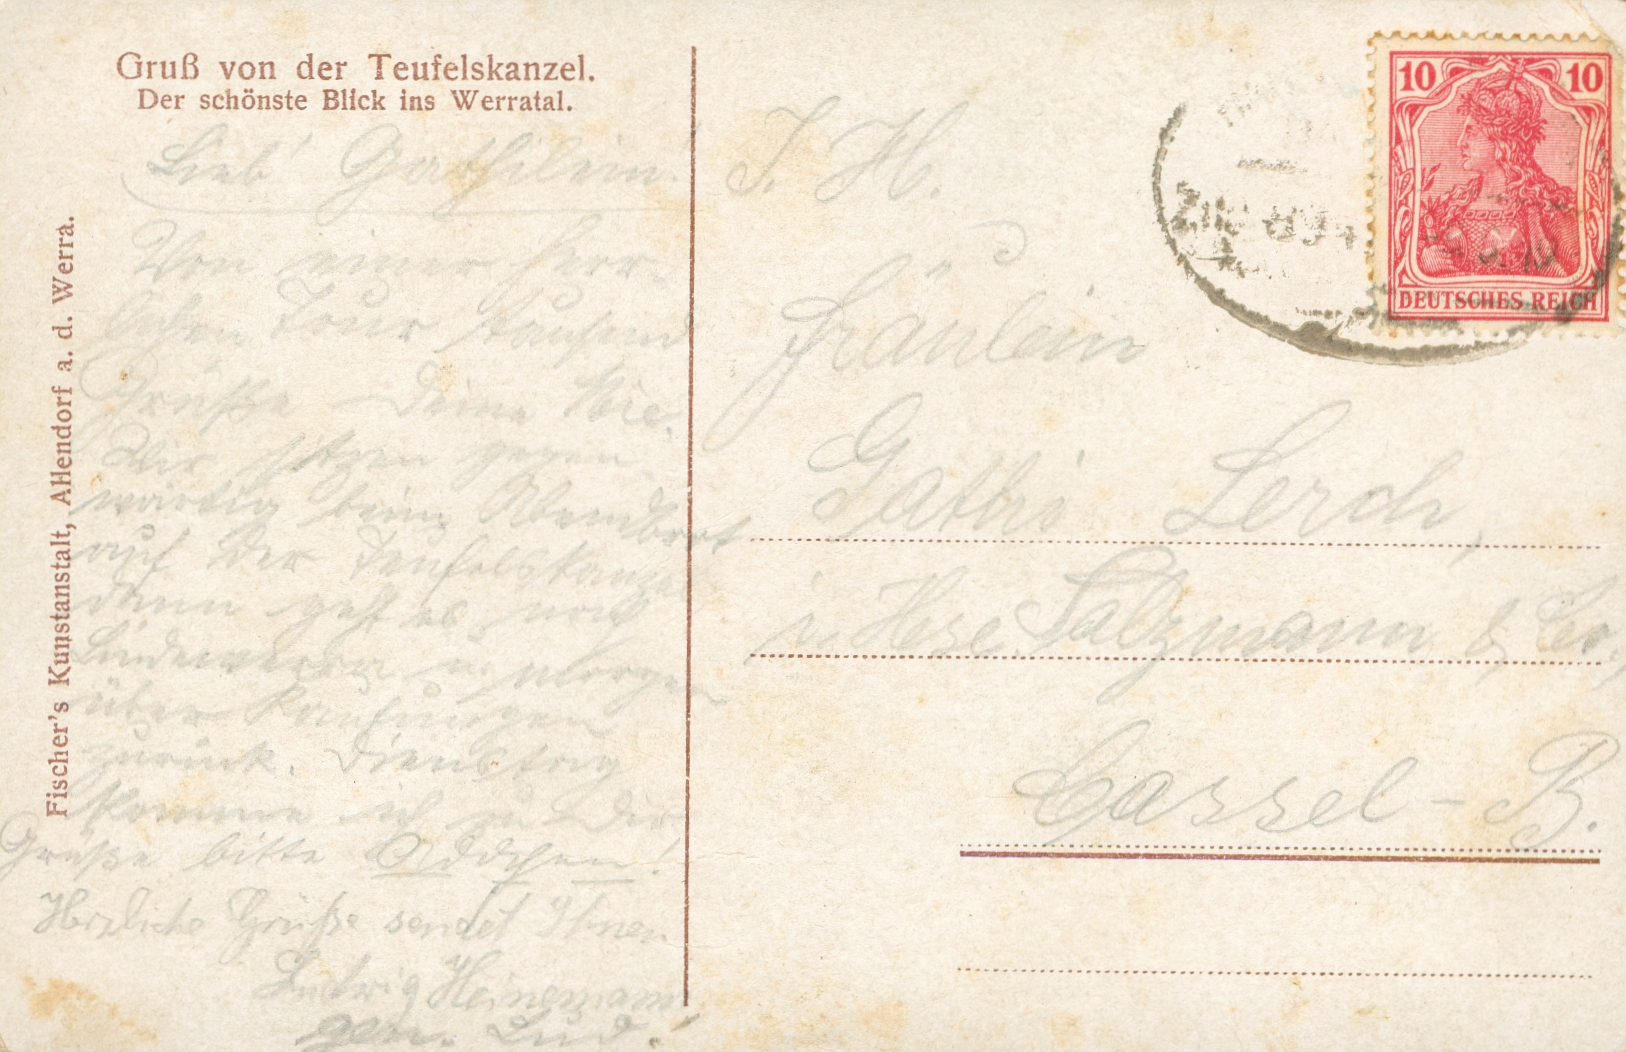 Gruß von der Teufelskanzel.
Der schönste Blick ins Werratal.
Fischer's Kunstanstalt, Allendorf a. d. Werra.
Lieb'
Von einer herr-
lichen Tour tausend
Grüße Deine
Wir sitzen gegen-
wärtig beim Abendbrot
auf der Teufelskanzel
dann geht es nach
Lindewerra u. morgen
über Kaufungen
zurück. Dienstag
komme ich zu Dir
Grüße bitte
Herzliche Grüße sendet Ihnen
Ludwig Heinemann
gen. Lud.
I. H.
Fräulein
Lerch,
i. Hse. Salzmann & Co.,
Cassel - B.
10 10
DEUTSCHES REICH
ZUG